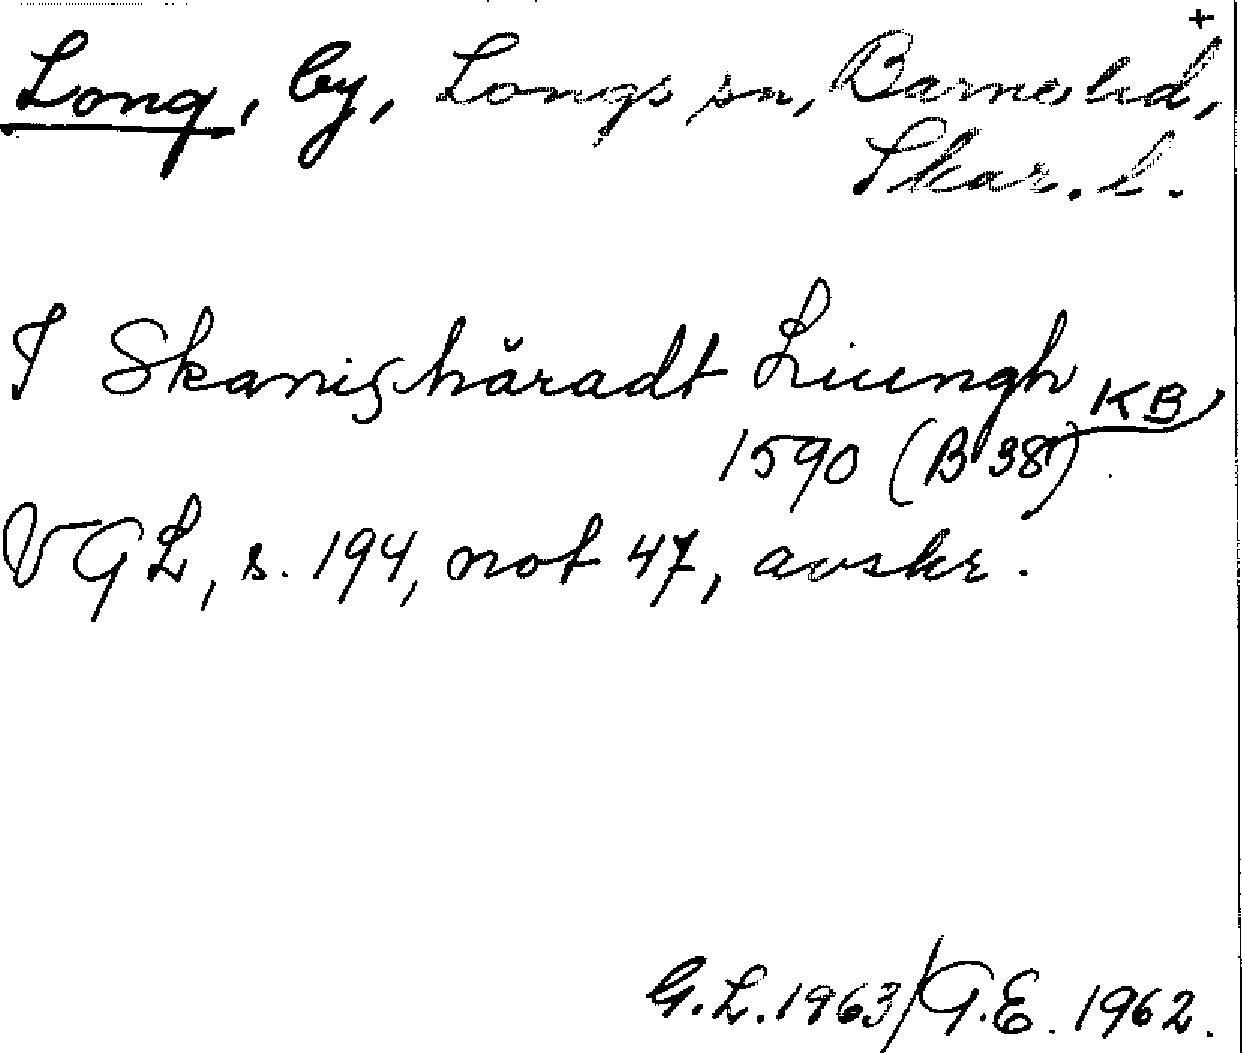 +
Long, by, Longs sn, Barne hd,
Skar. l.
I Skanişhäradt Liungh
1590 (B 38) KB.
VGL, s. 194, not 47, avskr.
G.L. 1963/G.E. 1962.